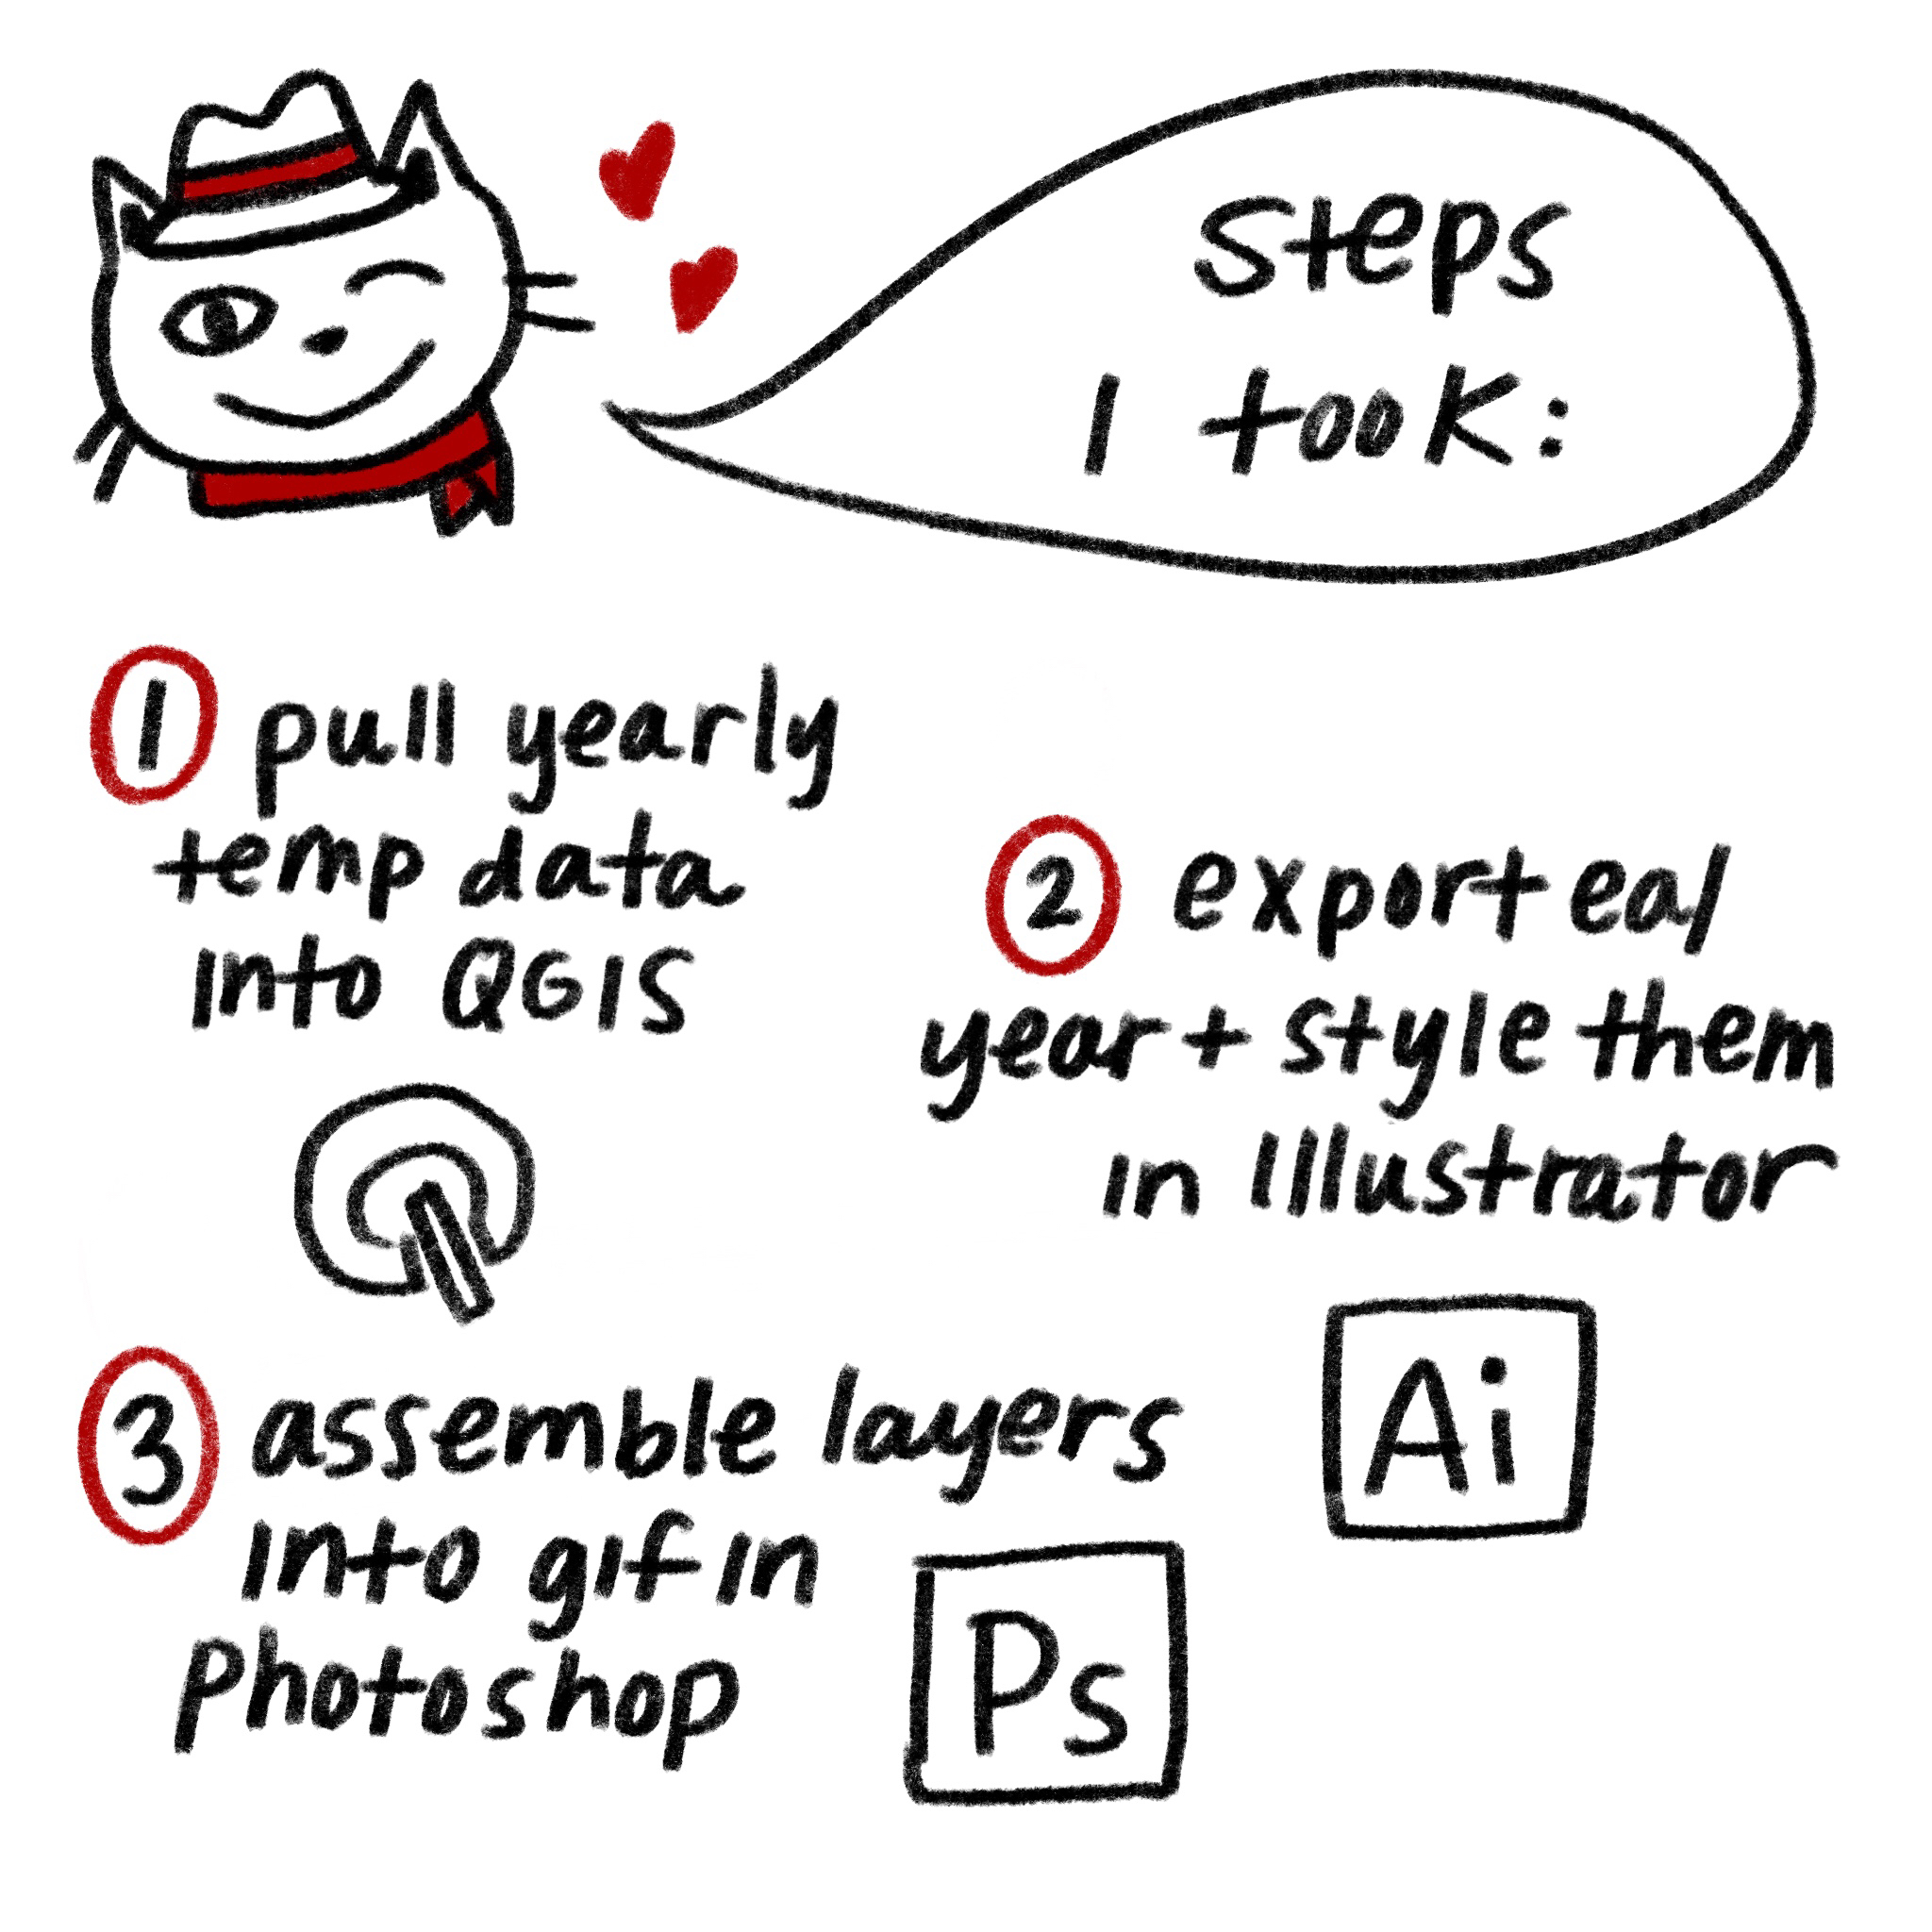 steps
I took:
1 pull yearly
temp data
into QGIS
2 export ea/
year + style them
in Illustrator
Ai
3 assemble layers
into gif in
Photoshop
Ps